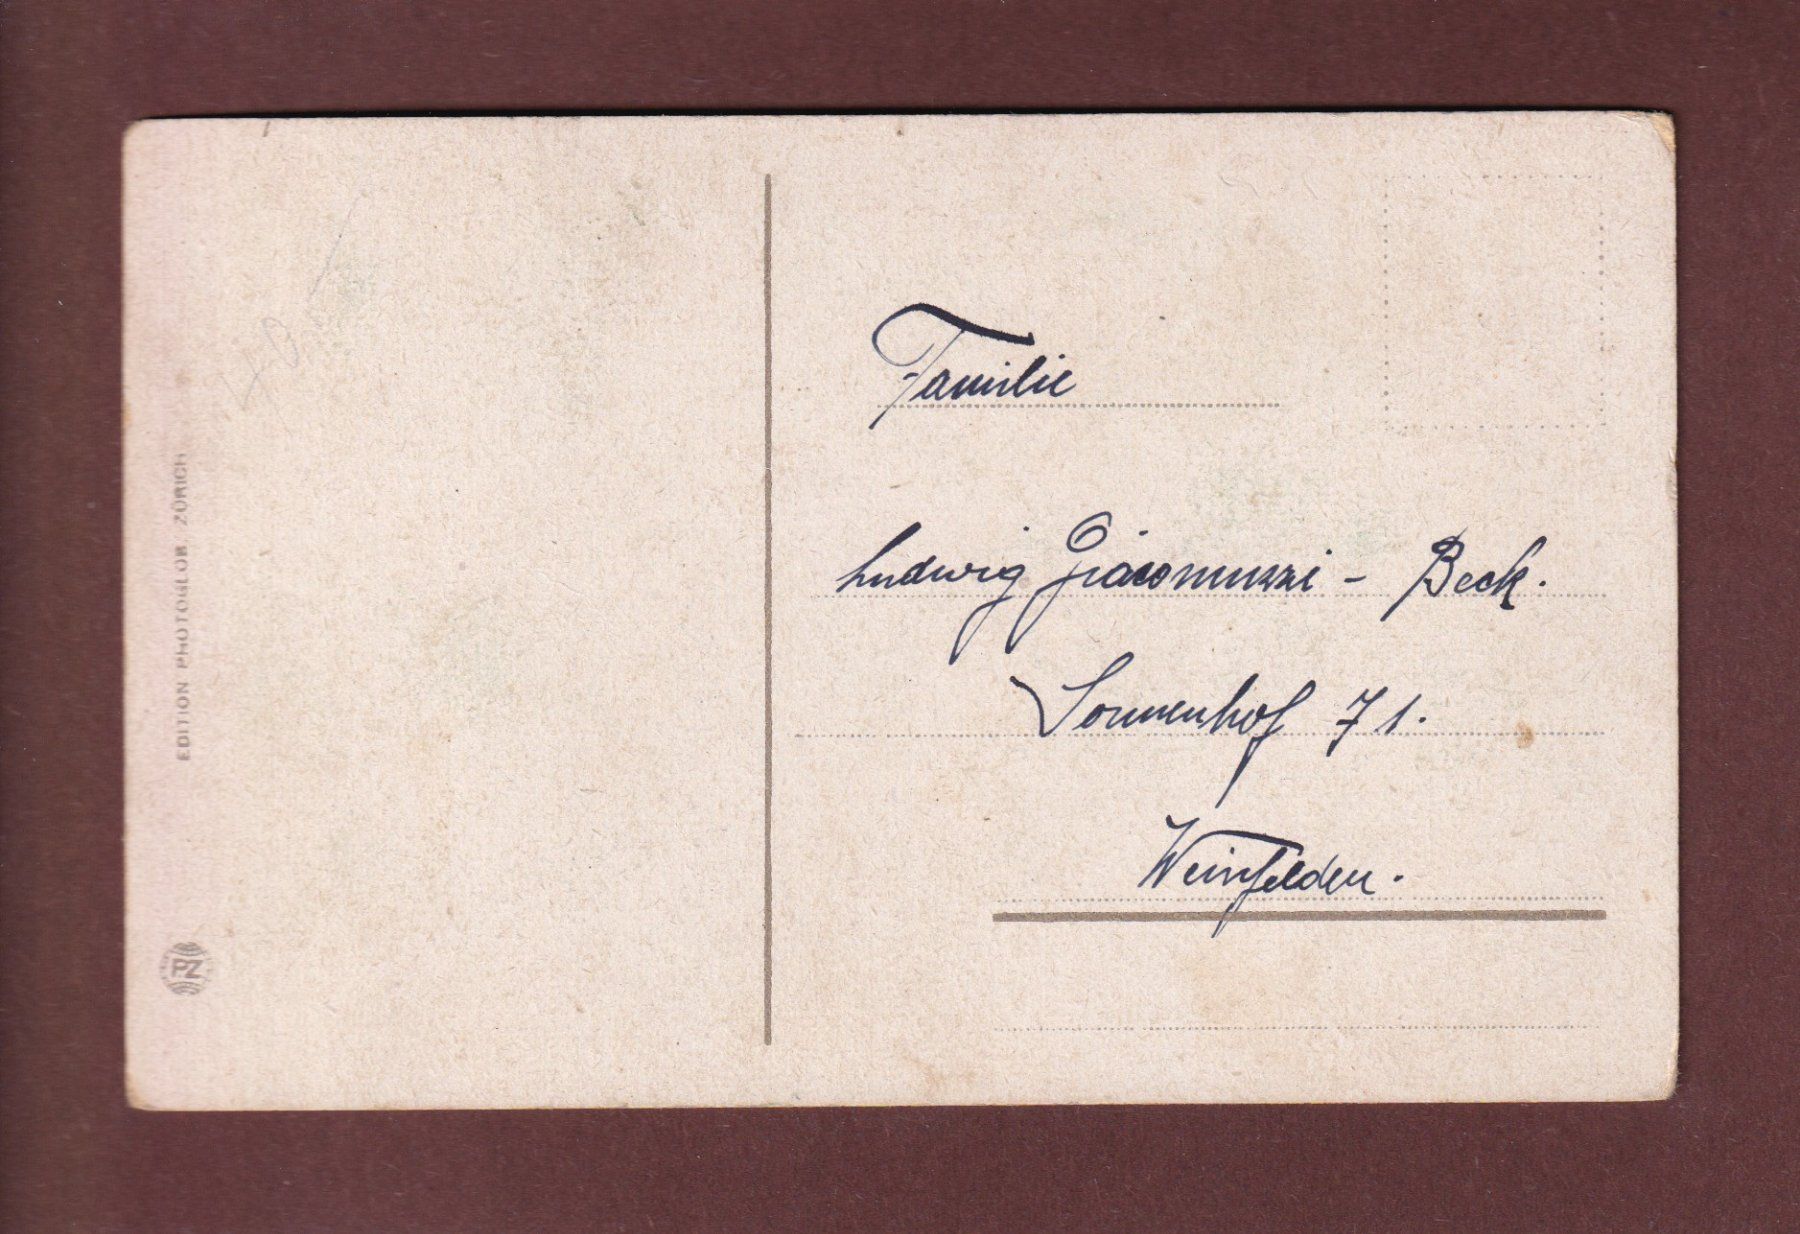 EDITION PHOTOGLOB, ZÜRICH
PZ
Familie
Ludwig Giacomuzzi - Beck.
Sonnenhof 71.
Weinfelden.